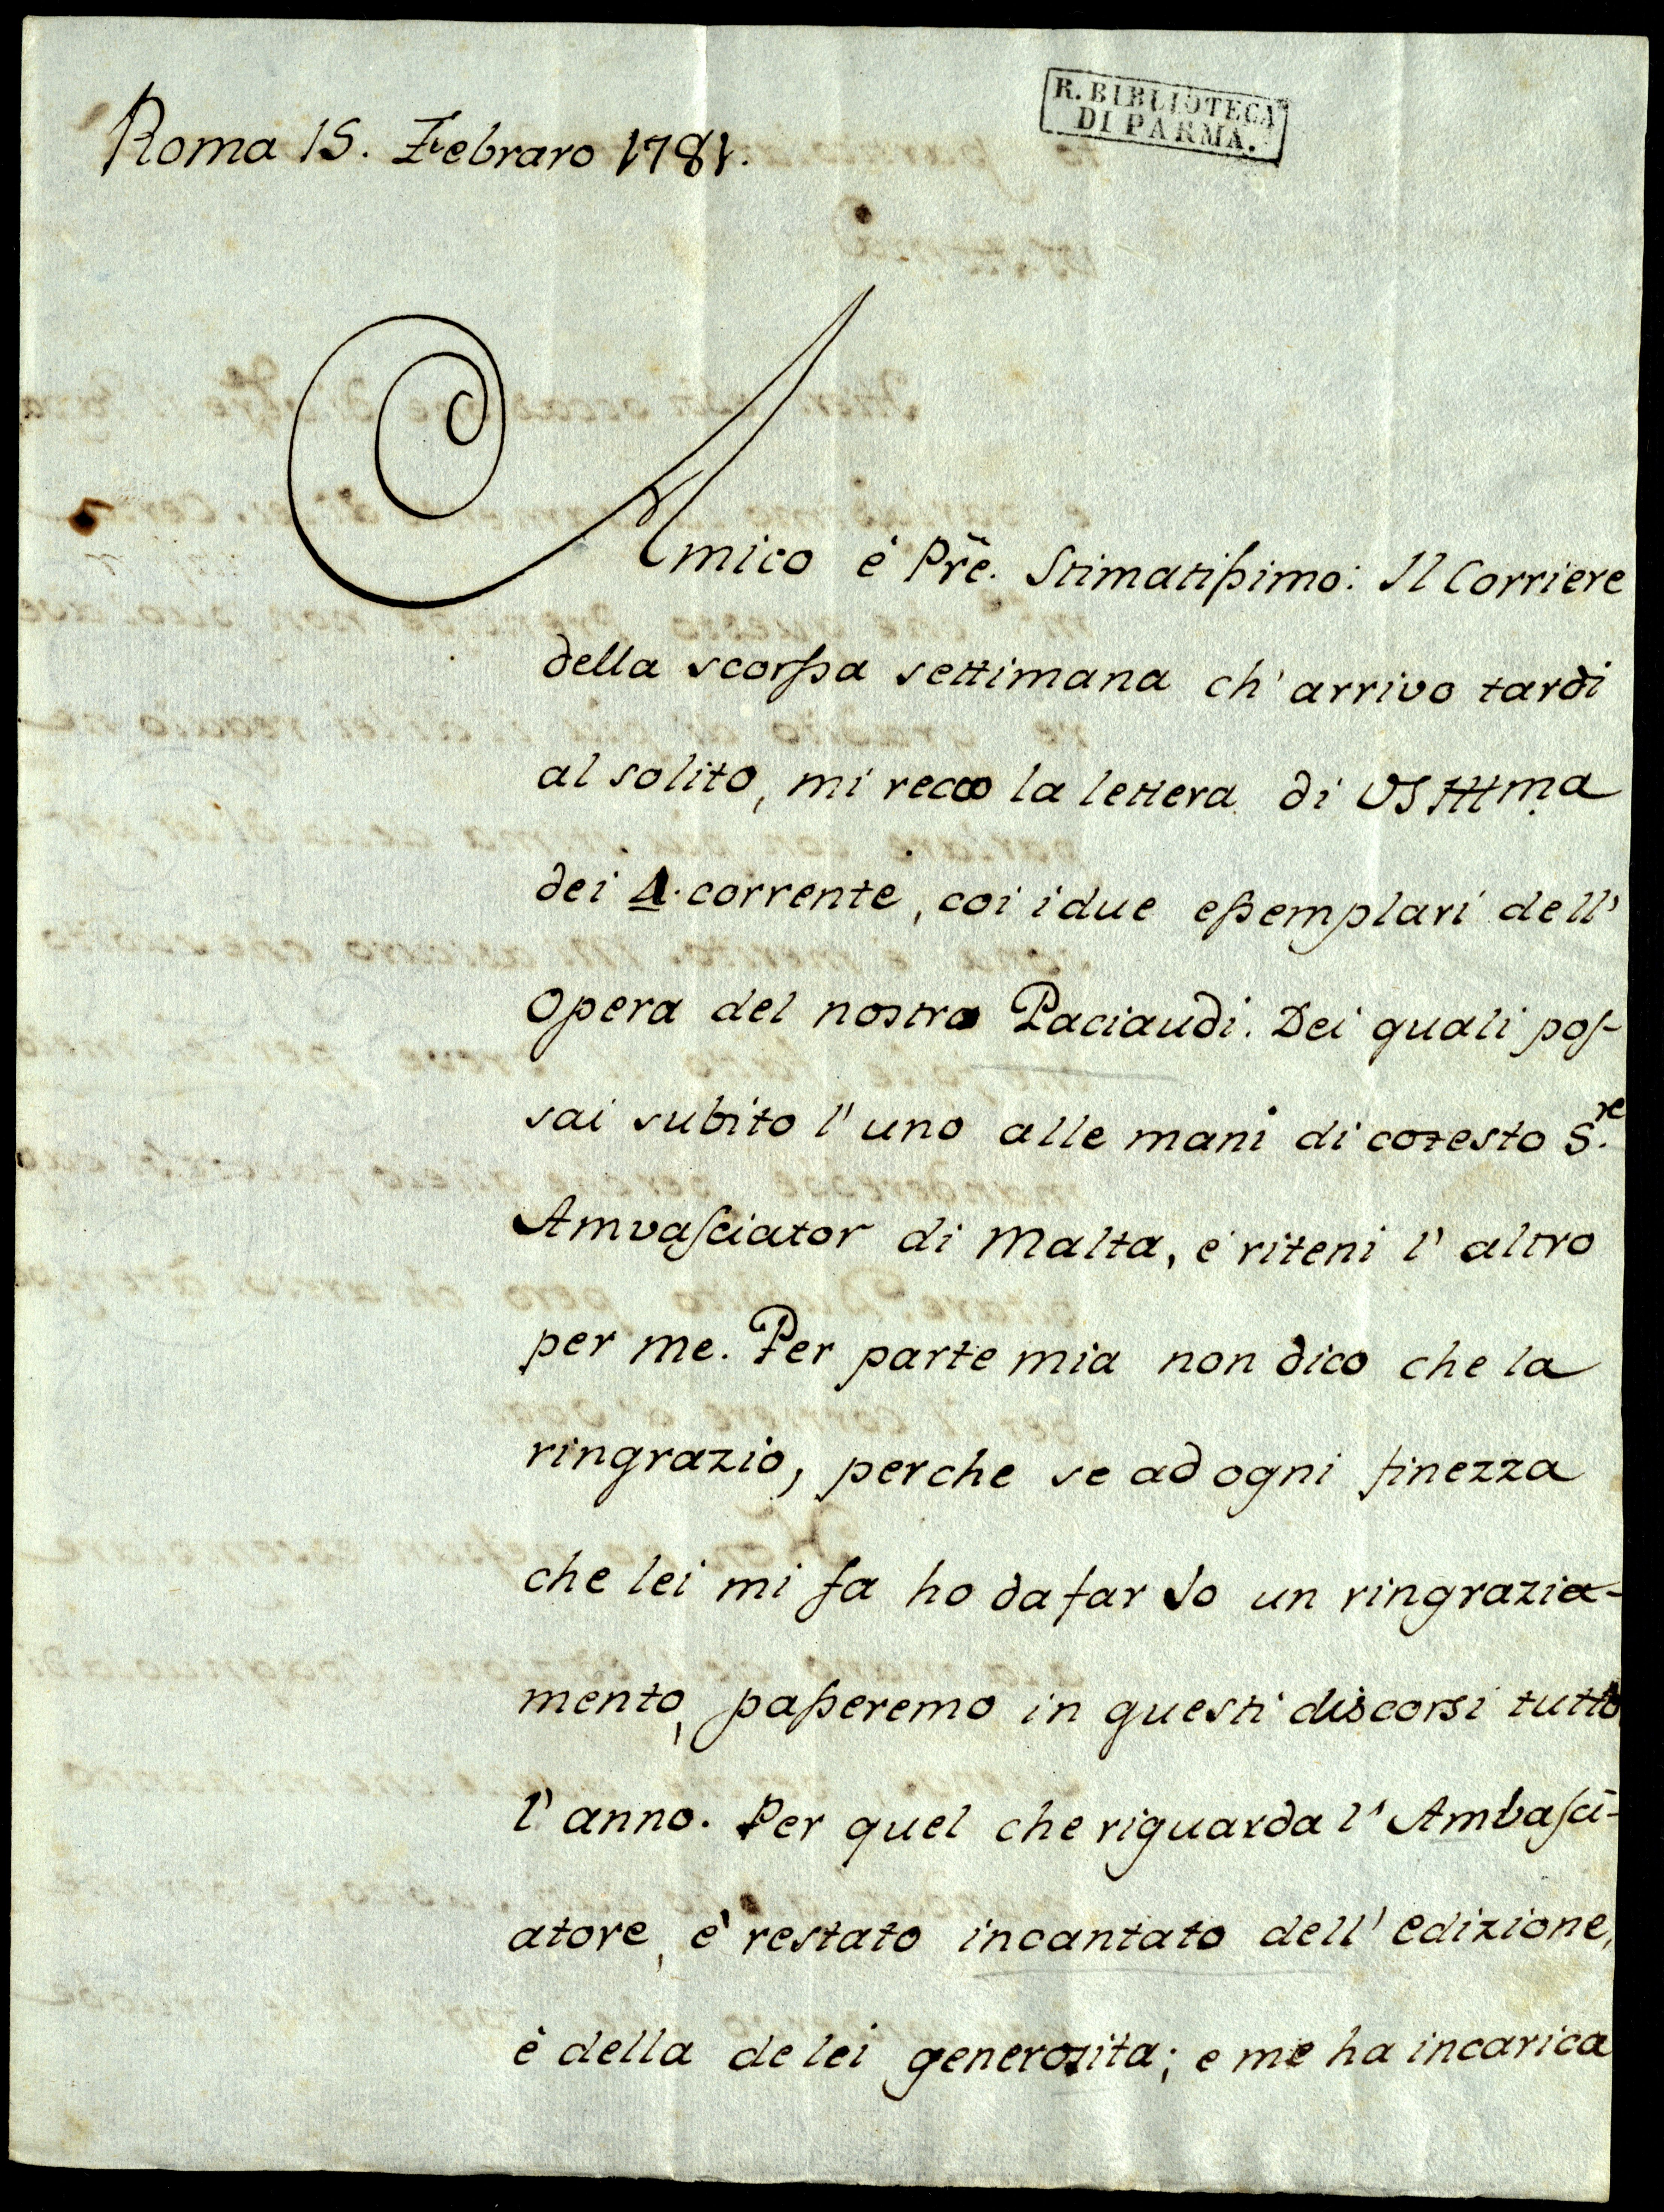 Roma 15. Febraro 1781.
R. BIBLIOTECA
DI PARMA.
Amico é Pr̃e. Stimatissimo: Il Corriere
della scorssa settimana ch' arrivo tardi
al solito, mi reco la lettera di VS Illma
dei 4. corrente, coi i due essemplari dell'
opera del nostro Paciaudi. Dei quali pos-
sai subito l' uno alle mani di cotesto S.re
Amvasciator di Malta, é riteni l' altro
per me. Per parte mia non dico che la
ringrazio, perche se ad ogni finezza
che lei mi fa ho da far Io un ringrazia-
mento, passeremo in questi discorsi tutto
l' anno. Per quel che riguarda l' Ambasci-
atore, e' restato incantato dell' edizione,
è della de lei generosita; e me ha incarica